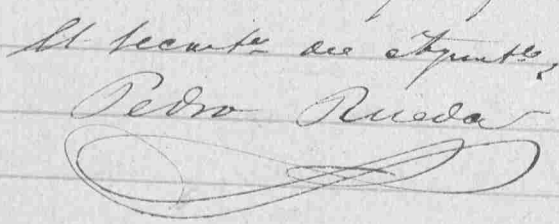 El Secretº del Ayuntº,
Pedro Rueda